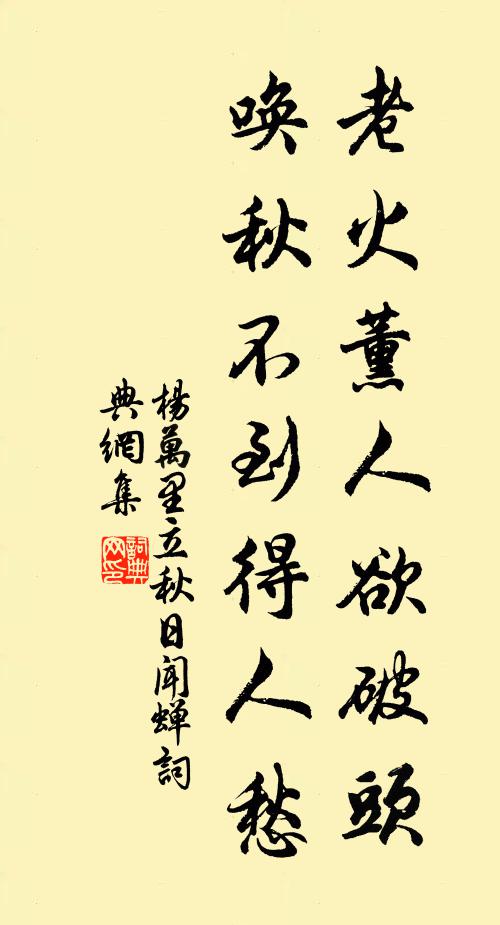 老火薰人欲破頭
唤秋不到得人愁
楊萬里立秋日闻蝉詞
典網集
詞典
网印